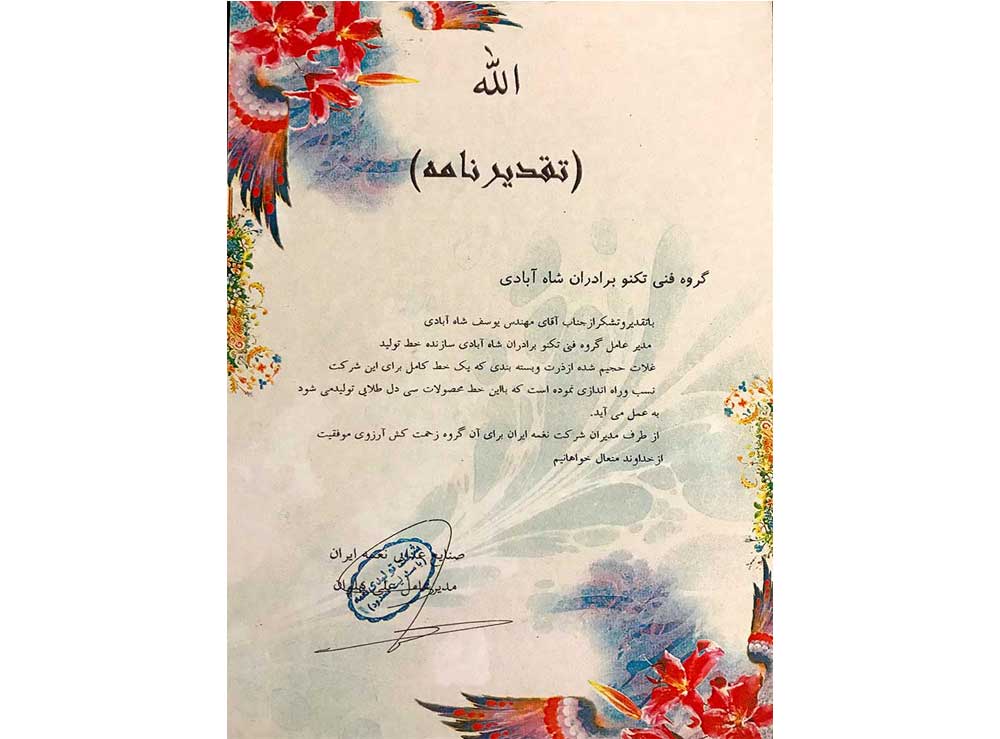 الله
(تقدیر نامه)
گروه فنی تکنو برادران شاه آبادی
باتقدیروتشکرازجناب آقای مهندس یوسف شاه آبادی
مدیر عامل گروه فنی تکنو برادران شاه آبادی سازنده خط تولید
غلات حجیم شده ازذرت وبسته بندی که یک خط کامل برای این شرکت
نسب وراه اندازی نموده است که بااین خط محصولات سی دل طلایی تولیدمی شود
به عمل می آید.
از طرف مدیران شرکت نغمه ایران برای آن گروه زحمت کش آرزوی موفقیت
ازخداوند متعال خواهانیم
صنایع غذایی نغمه ایران
مدیرعامل علی